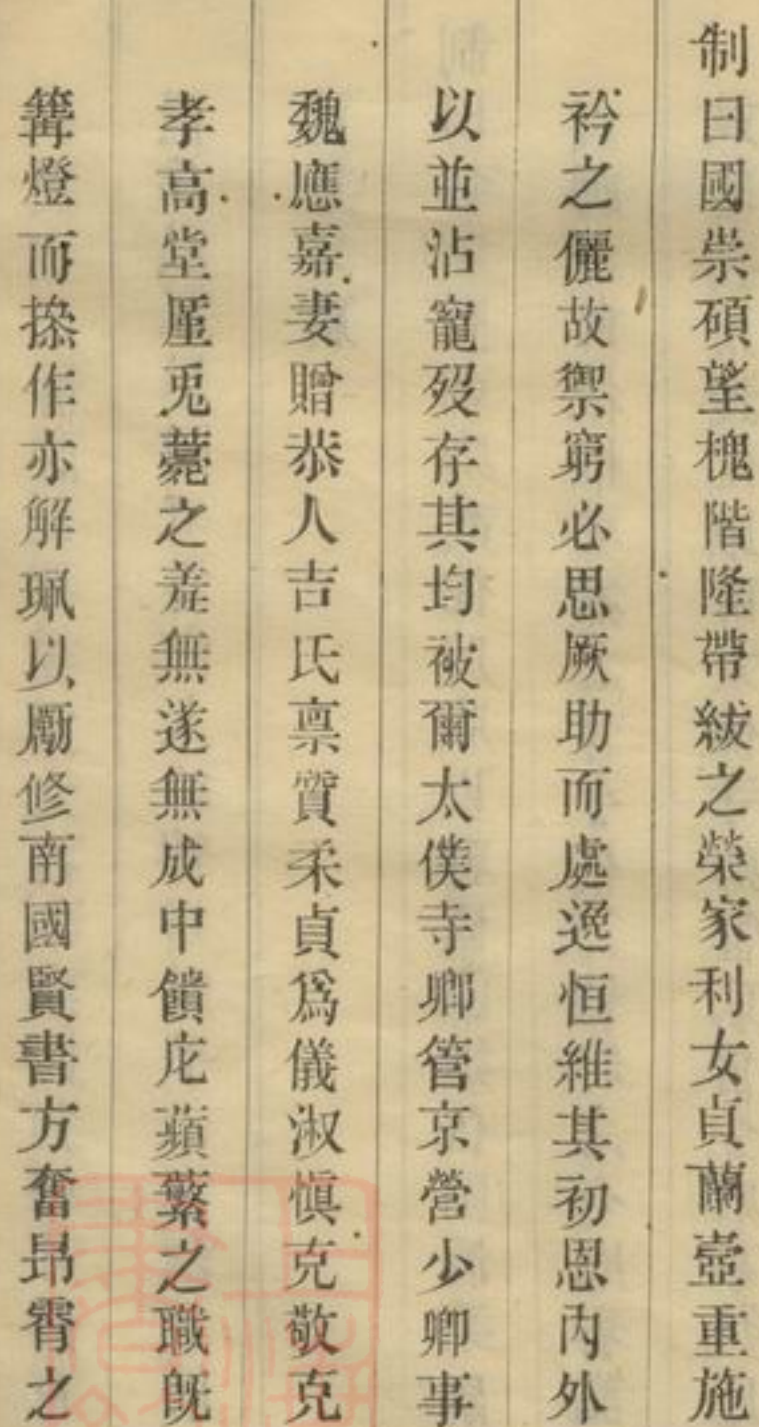 制曰國崇碩望槐階隆帶紱之榮家利女貞蘭壼重施
衿之儷故禦窮必思厥助而處逸恒維其初恩内外
以並沾寵歿存其均被爾太僕寺卿管京營少卿事
魏應嘉妻贈恭人吉氏禀質柔貞爲儀淑愼克敬克
孝高堂匪兎薧之羞無遂無成中饋庀蘋蘩之職旣
篝燈而操作亦解珮以勵修南國賢書方奮昂霄之